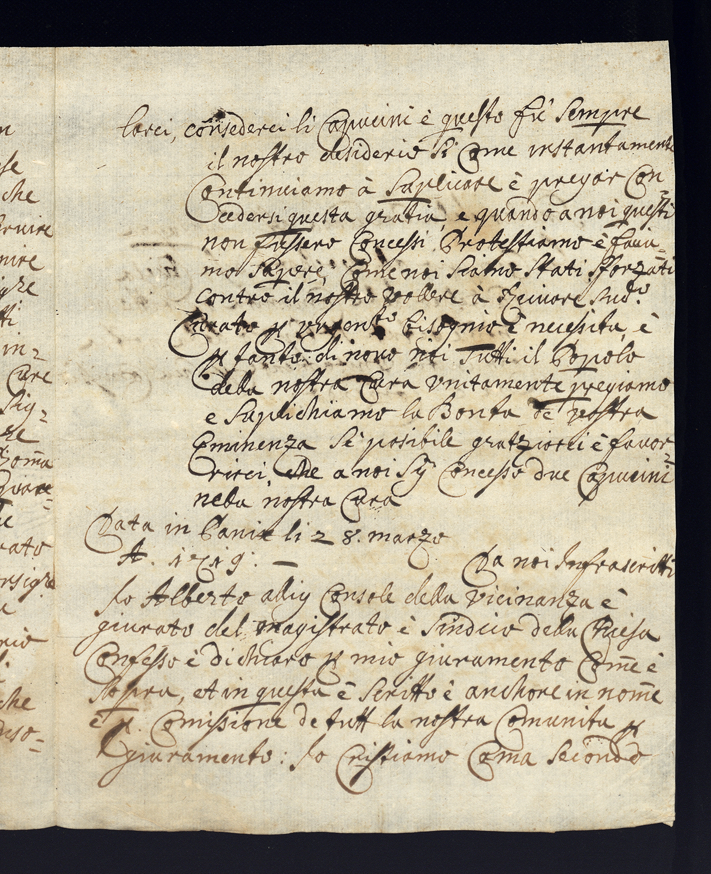 n
larci, consederci li Capucini è questo fu' sempre
se
il nostro desiderio si Come instantamente
che
Continuiamo à Suplicare è pregar Con=
cedersi questa gratia, e quando a noi questi
nire
non fussero Concessi, Protestiamo è faua=
mo Sapere, Come noi Siamo Stati Sforzati
contro il nostro vollere à Riceuore Sud.to
ti
Curato p urgent.o bisognio è necessita, è
in=
p tanto di nouo noi Tutti il Popolo
Cure
della nostra Cura vnitamente pregiamo
Sig=
e Suplichiamo la Bonta de vostra
re
Eminenza Se posibile gratziorci è fauor=
Rom̃a
rirci, che a noi Sij Concesso due Capucini
nella nostra Cura
Data in li 28. marzo
rato
A. 1719: — Da noi Infrascritti
Io Alberto Console della vicinanza è
giurato del magistrato è Sindico della Chiesa
rio
Confesso è dichiaro p mio giuramento Com̃e è
Sopra, et in questa è Scritto è anchore in nom̃e
che
è p. Comissione de tutt la nostra Comunita p
giuramento: Io Cristiamo Coma Secondo